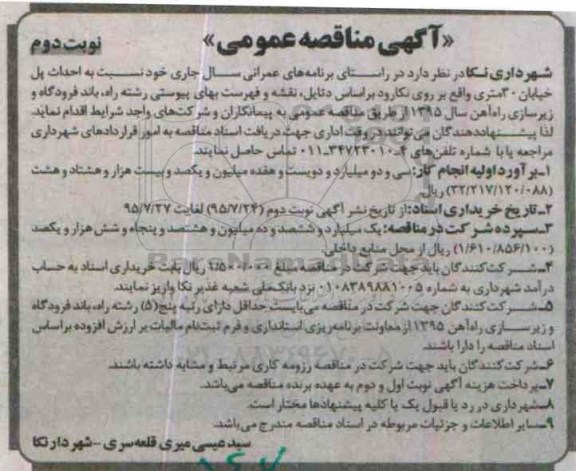 «آگهی مناقصه عمومی»
نوبت دوم
شهرداری نکا در نظر دارد در راستای برنامه‌های عمرانی سال جاری خود نسبت به احداث پل
خیابان ۳۰متری واقع بر روی نکارود براساس دتایل، نقشه و فهرست بهای پیوستی رشته راه، باند فرودگاه و
زیرسازی راه‌آهن سال ۱۳۹۵ از طریق مناقصه عمومی به پیمانکاران و شرکت‌های واجد شرایط اقدام نماید.
لذا پیشنهاددهندگان می‌توانند در وقت اداری جهت دریافت اسناد مناقصه به امور قراردادهای شهرداری
مراجعه یا با شماره تلفن‌های ۴-۳۴۷۲۳۰۱۰-۰۱۱ تماس حاصل نمایند.
۱-برآورد اولیه انجام کار: سی و دو میلیارد و دویست و هفده میلیون و یکصد و بیست هزار و هشتاد و هشت
(۳۲/۲۱۷/۱۲۰/۰۸۸) ریال.
۲-تاریخ خریداری اسناد: از تاریخ نشر آگهی نوبت دوم (۹۵/۷/۲۴) لغایت ۹۵/۷/۲۷
۳-سپرده شرکت در مناقصه: یک میلیارد و ششصد و ده میلیون و هشتصد و پنجاه و شش هزار و یکصد
(۱/۶۱۰/۸۵۶/۱۰۰) ریال از محل منابع داخلی.
۴-شرکت‌کنندگان باید جهت شرکت در مناقصه مبلغ ۱/۵۰۰/۰۰۰ ریال بابت خریداری اسناد به حساب
درآمد شهرداری به شماره ۰۱۰۸۳۸۹۸۸۱۰۰۵ نزد بانک ملی شعبه غدیر نکا واریز نمایند.
۵-شرکت‌کنندگان جهت شرکت در مناقصه می‌بایست حداقل دارای رتبه پنج(۵) رشته راه، باند فرودگاه
و زیرسازی راه‌آهن ۱۳۹۵ از معاونت برنامه‌ریزی استانداری و فرم ثبت‌نام مالیات بر ارزش افزوده براساس
اسناد مناقصه را دارا باشند.
۶-شرکت‌کنندگان باید جهت شرکت در مناقصه رزومه کاری مرتبط و مشابه داشته باشند.
۷-پرداخت هزینه آگهی نوبت اول و دوم به عهده برنده مناقصه می‌باشد.
۸-شهرداری در رد یا قبول یک یا کلیه پیشنهادها مختار است.
۹-سایر اطلاعات و جزئیات مربوطه در اسناد مناقصه مندرج می‌باشد.
سید عیسی میری قلعه‌سری - شهردار نکا